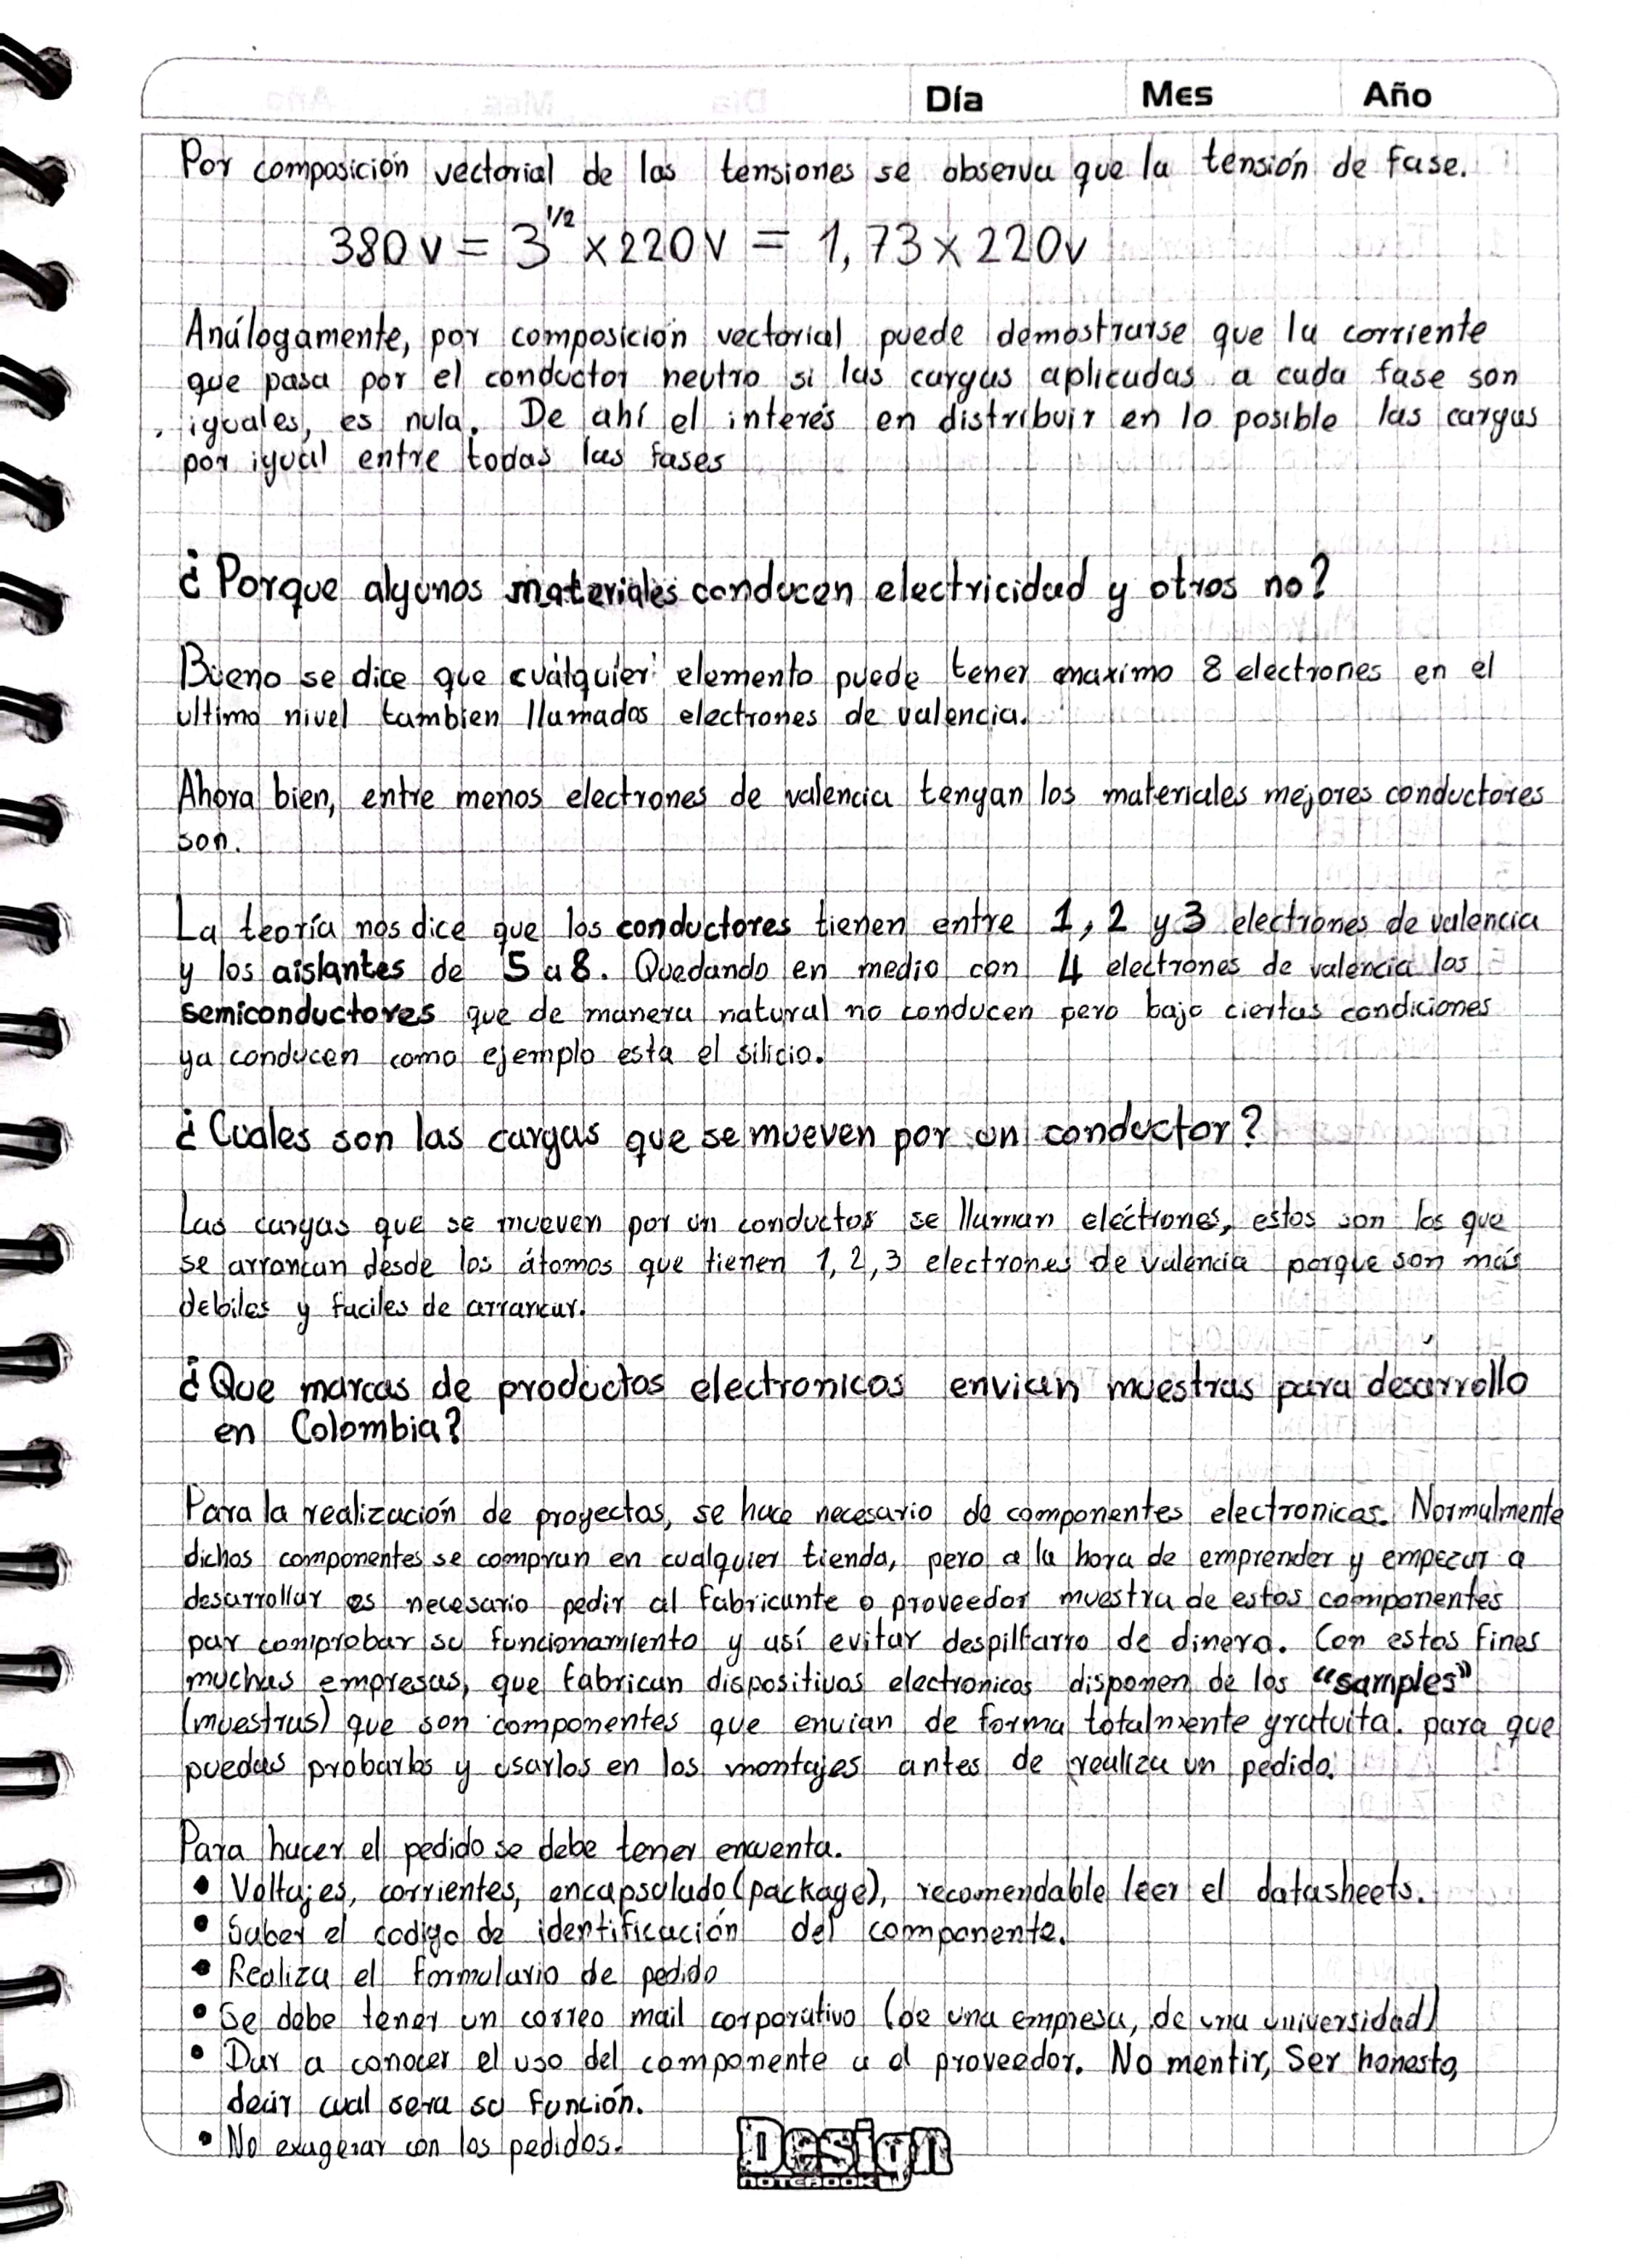 Día Mes Año
Por composición vectorial de las tensiones se observa que la tensión de fase.
380 v = 3^1/2 x 220 V = 1,73 x 220v
Análogamente, por composición vectorial puede demostrarse que la corriente
que pasa por el conductor neutro si las cargas aplicadas a cada fase son
iguales, es nula. De ahí el interés en distribuir en lo posible las cargas
por igual entre todas las fases
¿Porque algunos materiales conducen electricidad y otros no?
Bueno se dice que cualquier elemento puede tener maximo 8 electrones en el
ultimo nivel tambien llamados electrones de valencia.
Ahora bien, entre menos electrones de valencia tengan los materiales mejores conductores
son.
La teoría nos dice que los conductores tienen entre 1, 2 y 3 electrones de valencia
y los aislantes de 5 a 8. Quedando en medio con 4 electrones de valencia los
semiconductores que de manera natural no conducen pero bajo ciertas condiciones
ya conducen como ejemplo esta el silicio.
¿Cuales son las cargas que se mueven por un conductor?
Las cargas que se mueven por un conductor se llaman electrones, estos son los que
se arrancan desde los átomos que tienen 1, 2, 3 electrones de valencia porque son más
debiles y faciles de arrancar.
¿Que marcas de productos electronicos envian muestras para desarrollo
en Colombia?
Para la realización de proyectos, se hace necesario de componentes electronicos. Normalmente
dichos componentes se compran en cualquier tienda, pero a la hora de emprender y empezar a
desarrollar es necesario pedir al fabricante o proveedor muestra de estos componentes
par comprobar su funcionamiento y así evitar despilfarro de dinero. Con estos fines
muchas empresas, que fabrican dispositivos electronicos disponen de los "samples"
(muestras) que son componentes que envian de forma totalmente gratuita. para que
puedas probarlos y usarlos en los montajes antes de realiza un pedido.
Para hacer el pedido se debe tener encuenta.
• Voltajes, corrientes, encapsulado (package), recomendable leer el datasheets.
• Saber el codigo de identificación del componente.
• Realiza el formulario de pedido
• Se debe tener un correo mail corporativo (de una empresa, de una universidad)
• Dar a conocer el uso del componente a el proveedor. No mentir, Ser honesto,
decir cual sera su función.
• No exagerar con los pedidos.
Design
NOTEBOOK